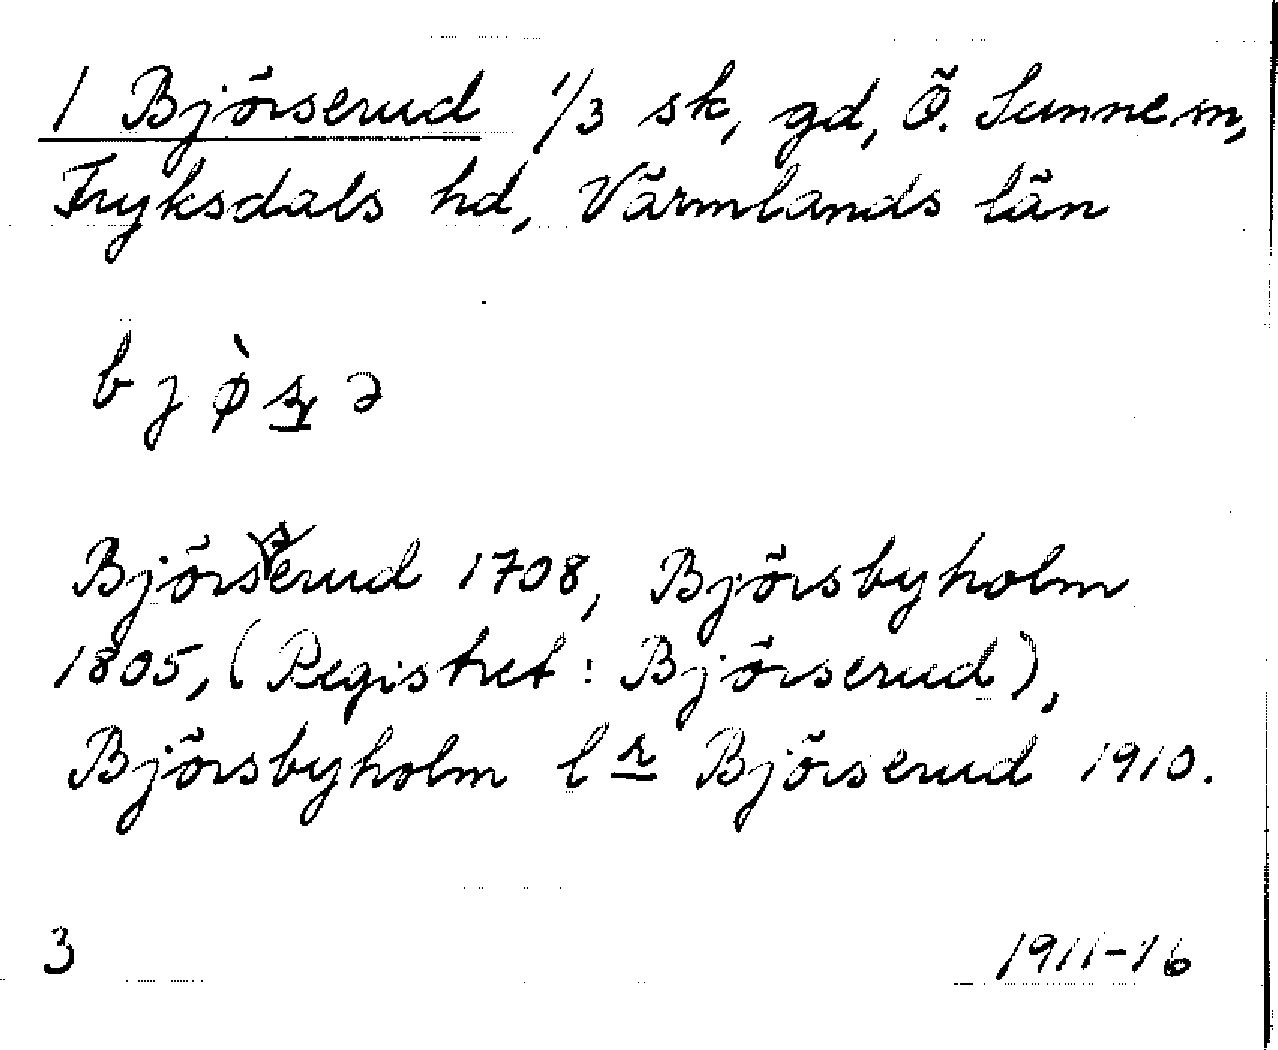 1 Björserud 1/3 sk, gd, Ö. Sunne sn,
Fryksdals hd, Värmlands län
Björserud 1708, Björsbyholm
1805, (Registret: Björserud),
Björsbyholm l r Björserud 1910.
3 1911-16